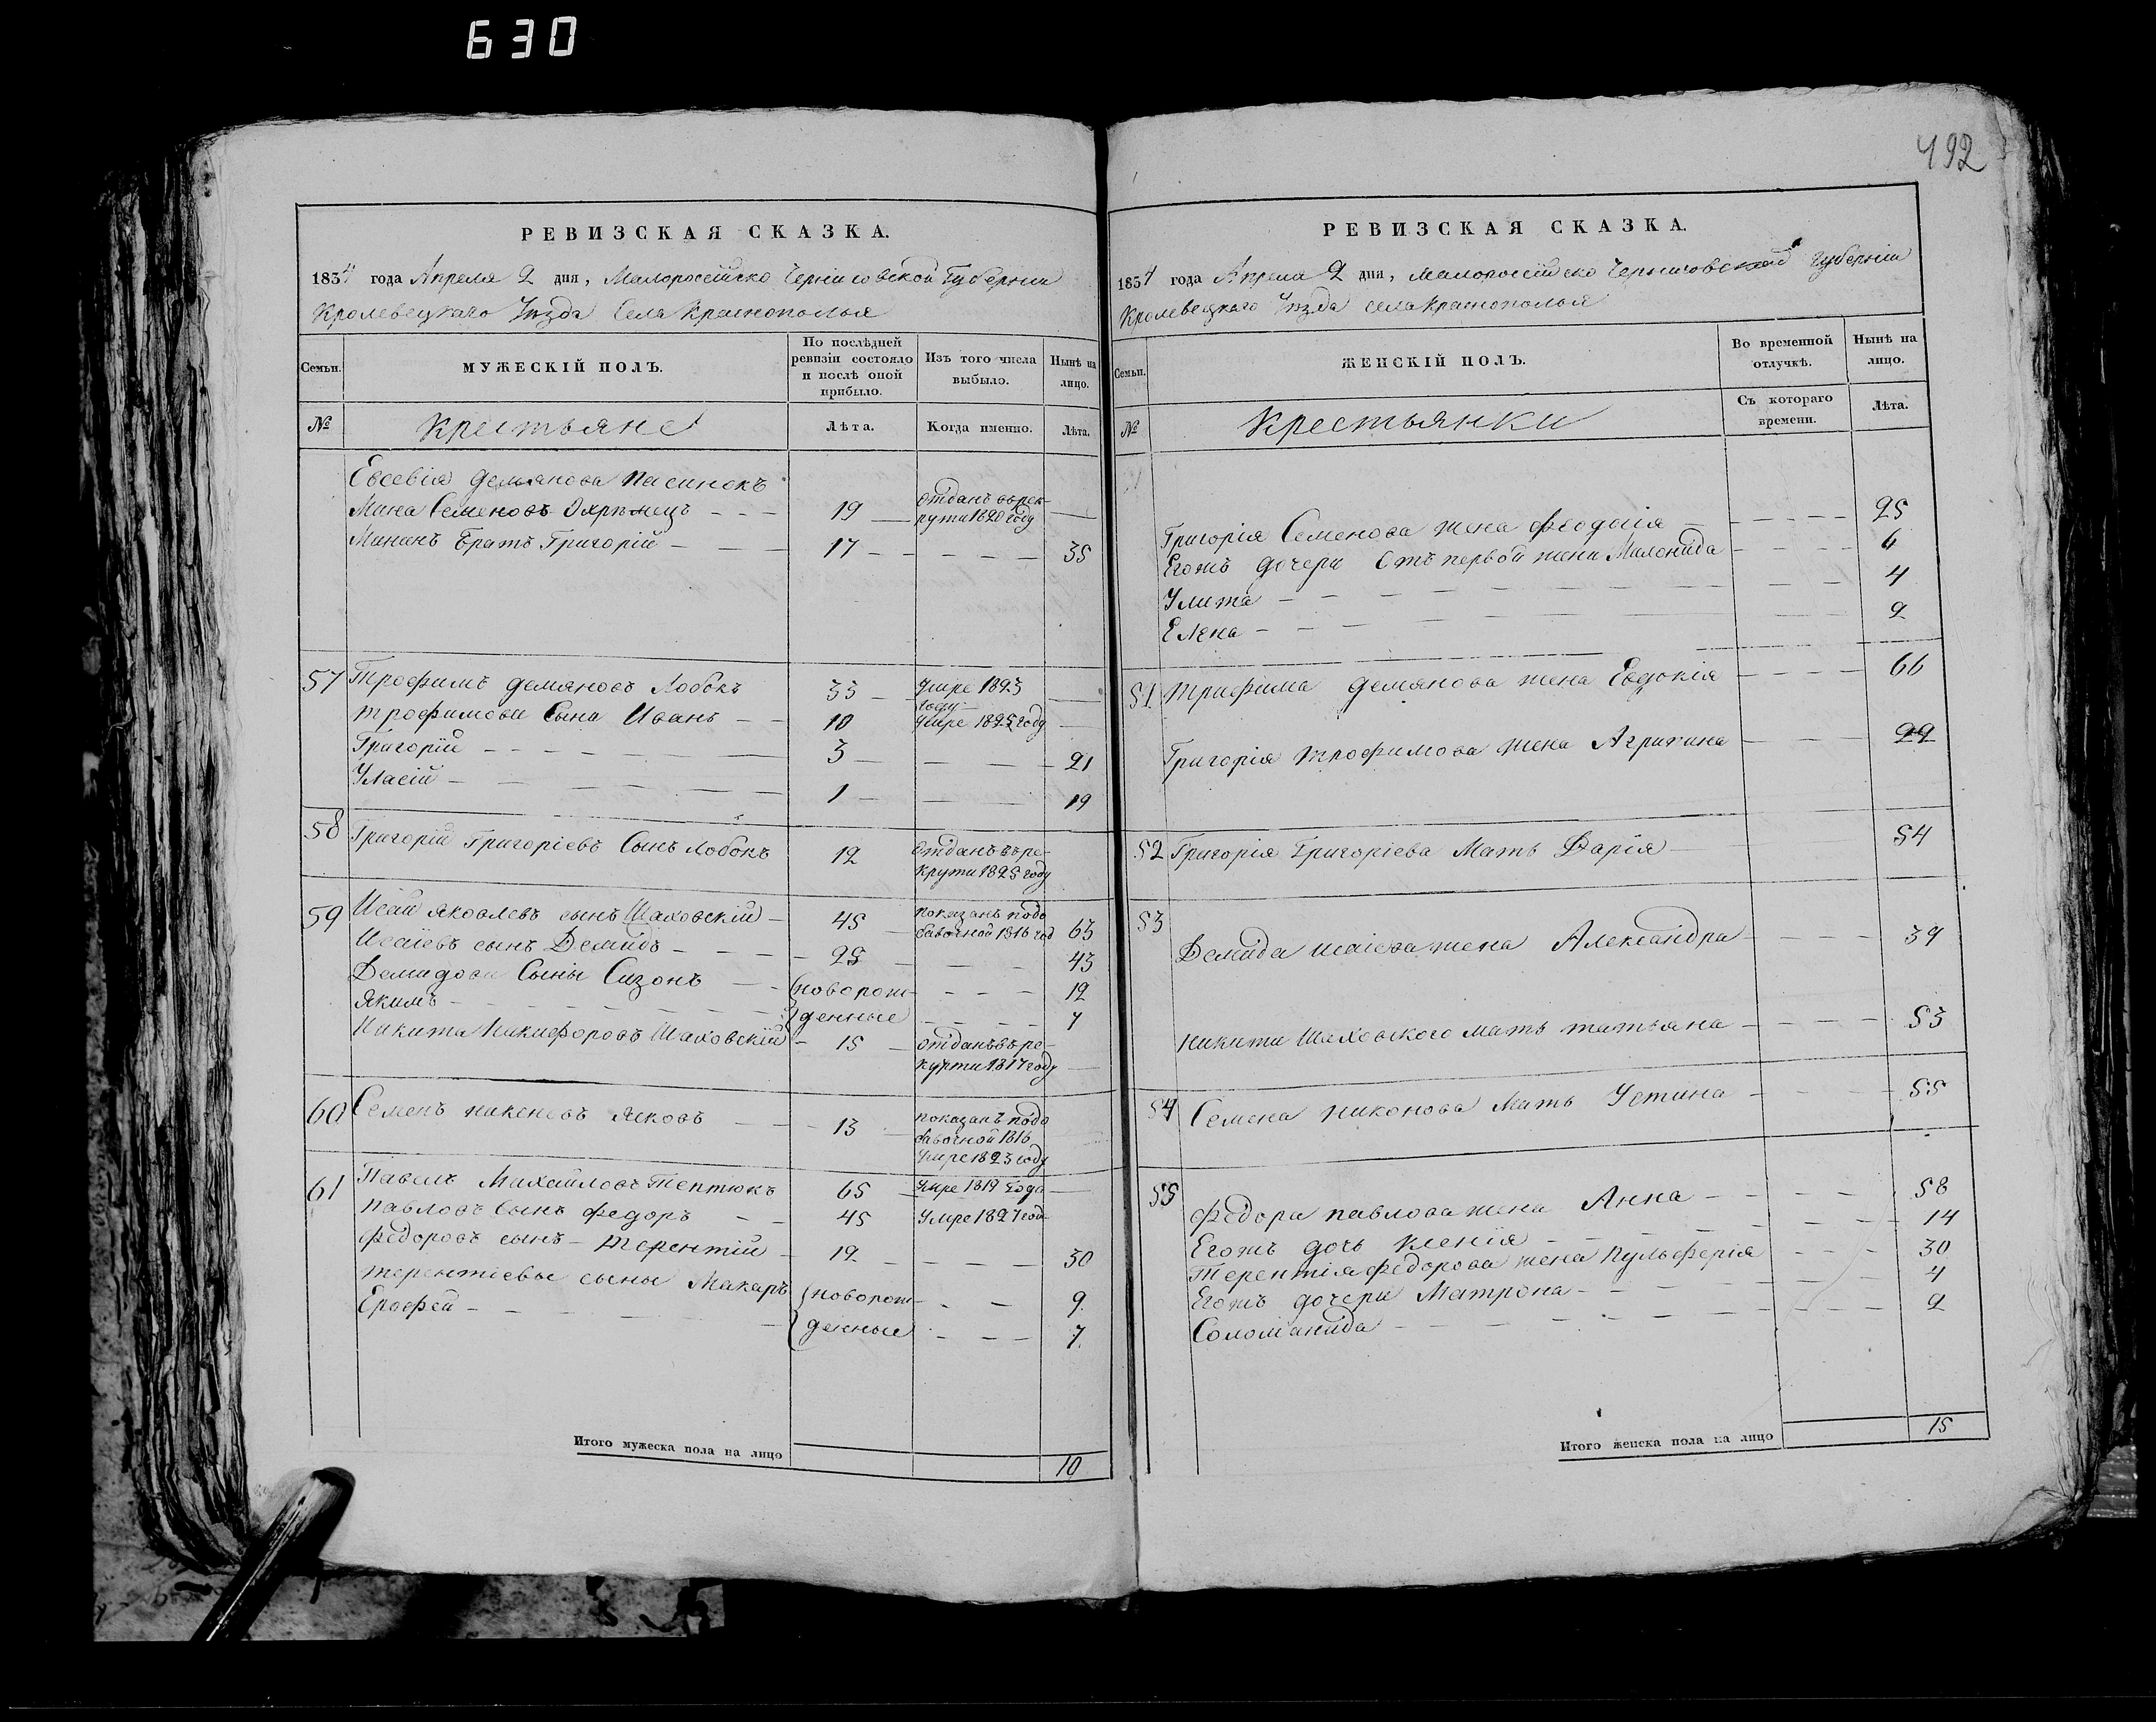 630
492
РЕВИЗСКАЯ СКАЗКА.
1834 года Апреля 2 дня, Малоросейско Черниговской Губернии
Кролевецкаго Уезда Села Краснополья
Семьи. МУЖЕСКІЙ ПОЛЪ. По послѣдней ревизіи состояло и послѣ оной прибыло. Изъ того числа выбыло. Нынѣ на лицо.
№ Крестьяне Лѣта. Когда именно. Лѣта.
Евсевія Демьянова пасинокъ
Мина Семеновъ 19 отданъ въ рек-
рути 1820 году
Мининъ Братъ Григорій 17 35
57 Трофимъ Демяновъ Лобокъ 33 Умре 1823
году
Трофимови Сыни Иванъ 10 Умре 1825 году
Григорій 3 21
Уласій 1 19
58 Григорій Григоріевъ Сынъ Лобокъ 12 Отданъ въ ре-
крути 1825 году
59 Исай Яковлевъ сынъ Шаховскій 45 показанъ подо
бавочной 1816 год 63
Исаіевъ сынъ Демидъ 25 43
Демидови Сыны Сизонъ новорож- 12
Якимъ денные 7
Никита Никифоровъ Шаховскій 15 отданъ въ ре-
курти 1817 году
60 Семенъ Яковъ 13 показанъ подо
бавочной 1816
Умре 1823 году
61 Павелъ Михайловъ Тептюкъ 65 Умре 1819 года
Павловъ Сынъ Федоръ 45 Умре 1827 год
Федоровъ сынъ Терентій 12 30
Терентіевы сыны Макаръ новорож- 9
Ерофей денные 7
Итого мужеска пола на лицо 10
РЕВИЗСКАЯ СКАЗКА.
1834 года Апреля 2 дня, Малоросейско Черниговской губерніи
Кролевецкаго Уезда села Краснополья
Семьи. ЖЕНСКІЙ ПОЛЪ. Во временной отлучкѣ. Нынѣ на лицо.
№ Крестьянки Съ котораго времени. Лѣта.
Григорія Семенова жена Феодосія 25
Егожъ дочери Отъ первой жени 6
Улита 4
Елена 2
51 Трофима Демянова жена Евдокія 66
Григорія Трофимова жена Агрипина 22
52 Григорія Григоріева Мать Дарія 54
53 Демида Исаіева жена Александра 39
Никити Шаховского мать Татьяна 53
54 Семена Никонова Мать Устина 55
55 Федора Павлова жена Анна 58
Егожъ дочь Ксенія 14
Терентія Федорова жена Пульферія 30
Егожъ дочери Матрона 4
Соломанида 2
Итого женска пола на лицо 15